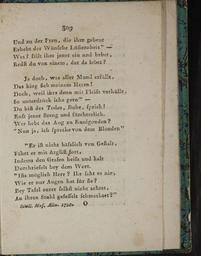 309
Und zu der Frau, die ihm gebeut
der Wünsche
Was? fällt ihm jener ein und bebet,
Redst du von einem, der da lebet?
Ja doch, was aller Mund erfüllt,
Das birg ich meinem Herrn!
Doch, weil ihr's denn mit Fleiß verhüllt,
So unterdrück ichs gern" —
Du bist des Todes, Bube, sprich!
Ruft jener streng und fürchterlich.
Wer hebt das Aug zu Kunigonden?
"Nun ja, ich spreche von dem Blonden"
"Er ist nicht häßlich von Gestalt,
Fährt er mit Arglist fort,
Indem den Grafen heiß und kalt
Durchrieselt bey dem Wort.
"Ists möglich Herr? Ihr saht es nie,
Wie er nur Augen hat für sie?
Bey Tafel eurer selbst nicht achtet,
An ihren Stuhl gefesselt schmachtet?"
Schill. Mus. Alm. O